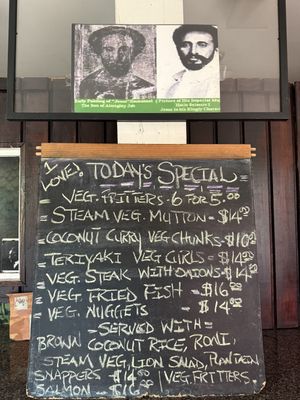 Early Painting of "Jesus" Emmanuel
The Son of Almighty Jah
Picture of His Imperial Maj
Haile Selassie I
Jesus in his Kingly Charac
1 LOVE! TODAY'S SPECIAL
VEG. FRITTERS - 6 FOR 5.00
STEAM VEG. MUTTON - $14.00
COCONUT CURRY VEG CHUNKS - $10.00
TERIYAKI VEG CURLS - $14
VEG. STEAK WITH ONIONS - $14
VEG. FRIED FISH - $16.00
VEG. NUGGETS - $14.00
- SERVED WITH -
BROWN COCONUT RICE, RONI,
STEAM VEG, LION SALAD, PLANTAIN
SNAPPERS $14.00 | VEG. FRITTERS.
SALMON - $16.00